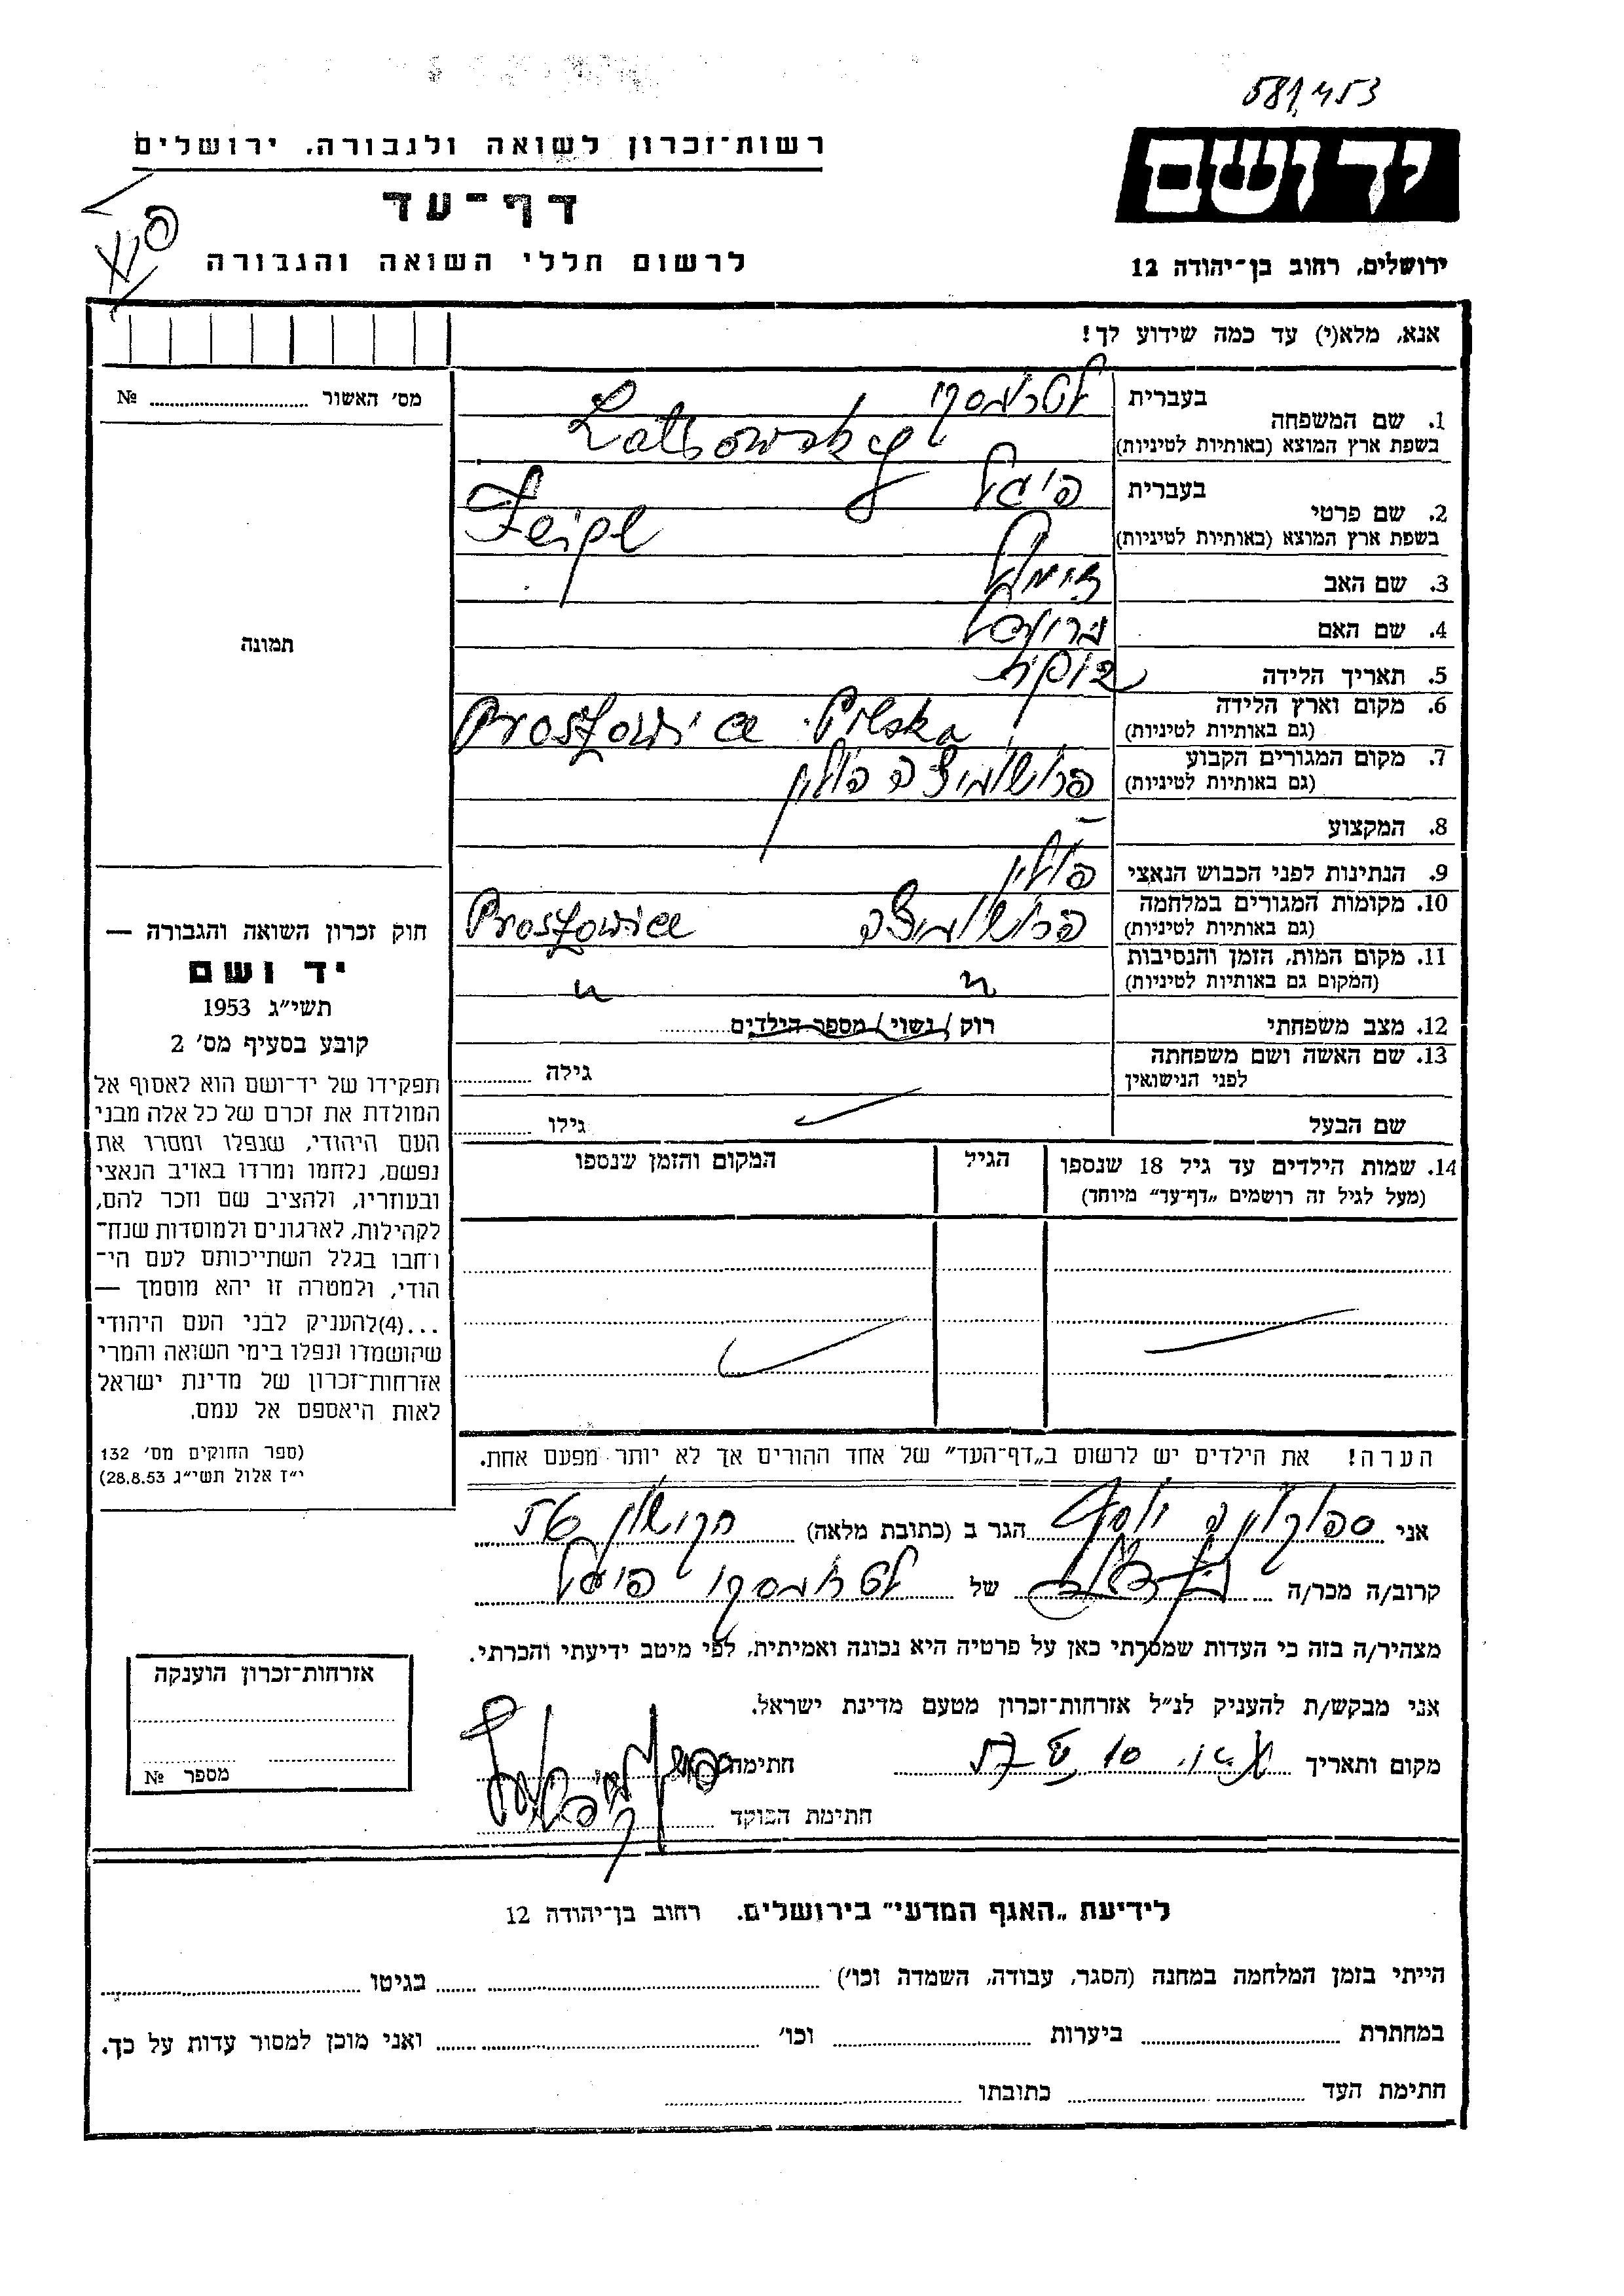 581,453
יד ושם
ירושלים, רחוב בן־יהודה 12
רשות־זכרון לשואה ולגבורה, ירושלים
דף־עד
לרשום חללי השואה והגבורה
אנא, מלא(י) עד כמה שידוע לך!
מס׳ האשור № 
תמונה
1. שם המשפחה
בעברית
בשפת ארץ המוצא (באותיות לטיניות)
2. שם פרטי
בעברית פיגל
בשפת ארץ המוצא (באותיות לטיניות)
3. שם האב
4. שם האם
5. תאריך הלידה תינוקת
6. מקום וארץ הלידה
(גם באותיות לטיניות) Proszowice Polska
7. מקום המגורים הקבוע
(גם באותיות לטיניות) פרושוביצה פולין
8. המקצוע –
9. הנתינות לפני הכבוש הנאצי פולין
10. מקומות המגורים במלחמה
(גם באותיות לטיניות) פרושוביצה Proszowice
11. מקום המות, הזמן והנסיבות
(המקום גם באותיות לטיניות) " "
12. מצב משפחתי רוק / נשוי / מספר הילדים
13. שם האשה ושם משפחתה
לפני הנישואין גילה
שם הבעל גילו
14. שמות הילדים עד גיל 18 שנספו הגיל המקום והזמן שנספו
(מעל לגיל זה רושמים „דף־עד״ מיוחד)
הערה! את הילדים יש לרשום ב„דף־העד״ של אחד ההורים אך לא יותר מפעם אחת.
חוק זכרון השואה והגבורה —
יד ושם
תשי״ג 1953
קובע בסעיף מס׳ 2
תפקידו של יד־ושם הוא לאסוף אל
המולדת את זכרם של כל אלה מבני
העם היהודי, שנפלו ומסרו את
נפשם, נלחמו ומרדו באויב הנאצי
ובעוזריו, ולהציב שם וזכר להם,
לקהילות, לארגונים ולמוסדות שנח־
רחבו בגלל השתייכותם לעם הי־
הודי, ולמטרה זו יהא מוסמך —
...(4)להעניק לבני העם היהודי
שהושמדו ונפלו בימי השואה והמרי
אזרחות־זכרון של מדינת ישראל
לאות היאספם אל עמם.
(ספר החוקים מס׳ 132
י״ז אלול תשי״ג 28.8.53)
אני הגר ב (כתובת מלאה)
קרוב/ה מכר/ה של
מצהיר/ה בזה כי העדות שמסרתי כאן על פרטיה היא נכונה ואמיתית, לפי מיטב ידיעתי והכרתי.
אני מבקש/ת להעניק לנ״ל אזרחות־זכרון מטעם מדינת ישראל.
מקום ותאריך חתימה
חתימת הפוקד
אזרחות־זכרון הוענקה
מספר №
לידיעת „האגף המדעי״ בירושלים. רחוב בן־יהודה 12
הייתי בזמן המלחמה במחנה (הסגר, עבודה, השמדה וכו׳) בגיטו
במחתרת ביערות וכו׳ ואני מוכן למסור עדות על כך.
חתימת העד כתובתו